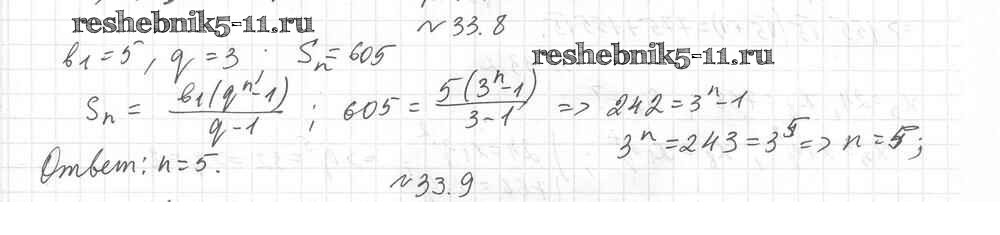 reshebnik5-11.ru
№33.8
b1=5, q=3; Sn=605
reshebnik5-11.ru
Sn = b1(q^n-1)/(q-1); 605 = 5(3^n-1)/(3-1) => 242=3^n-1
3^n=243=3^5 => n=5;
Ответ: n=5.
№33.9